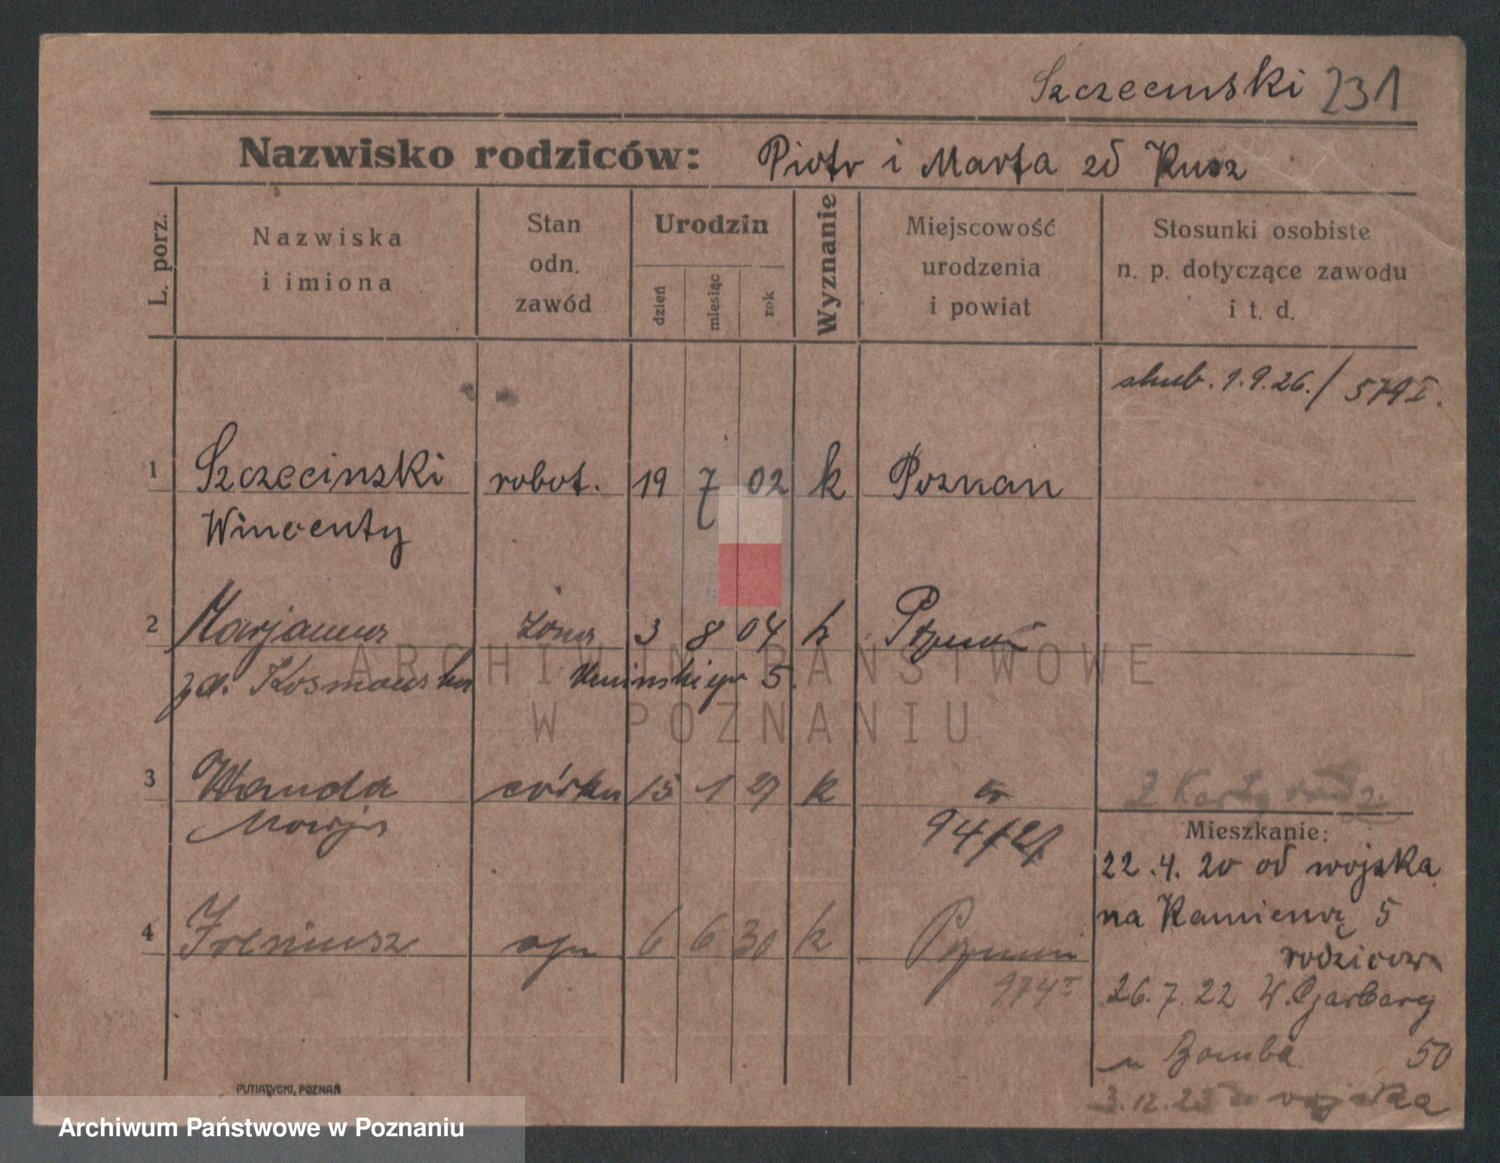 Szczecinski 231
Nazwisko rodziców: Piotr i Marta zd Kusz
L. porz.
Nazwiska
i imiona
Stan
odn.
zawód
Urodzin
dzień
miesiąc
rok
Wyznanie
Miejscowość
urodzenia
i powiat
Stosunki osobiste
n. p. dotyczące zawodu
i t. d.
ślub. 1.9.26./579 I.
1 Szczecinski robot. 19 7 02 k Poznan
Wincenty
2 Marjanna żona 3 8 04 k Poznań
zd. Kosmowska 5.
3 Wanda córka 15 1 27 k
Marja 94/27
4 Ireniusz syn 6 6 30 k Poznań
974 I
Mieszkanie:
22.4.20 od wojska
na Kamienną 5
rodzicow
26.7.22 W. Garbary
50
3.12.25 wojska
PUTIATYCKI, POZNAŃ
ARCHIWUM PAŃSTWOWE
W POZNANIU
Archiwum Państwowe w Poznaniu